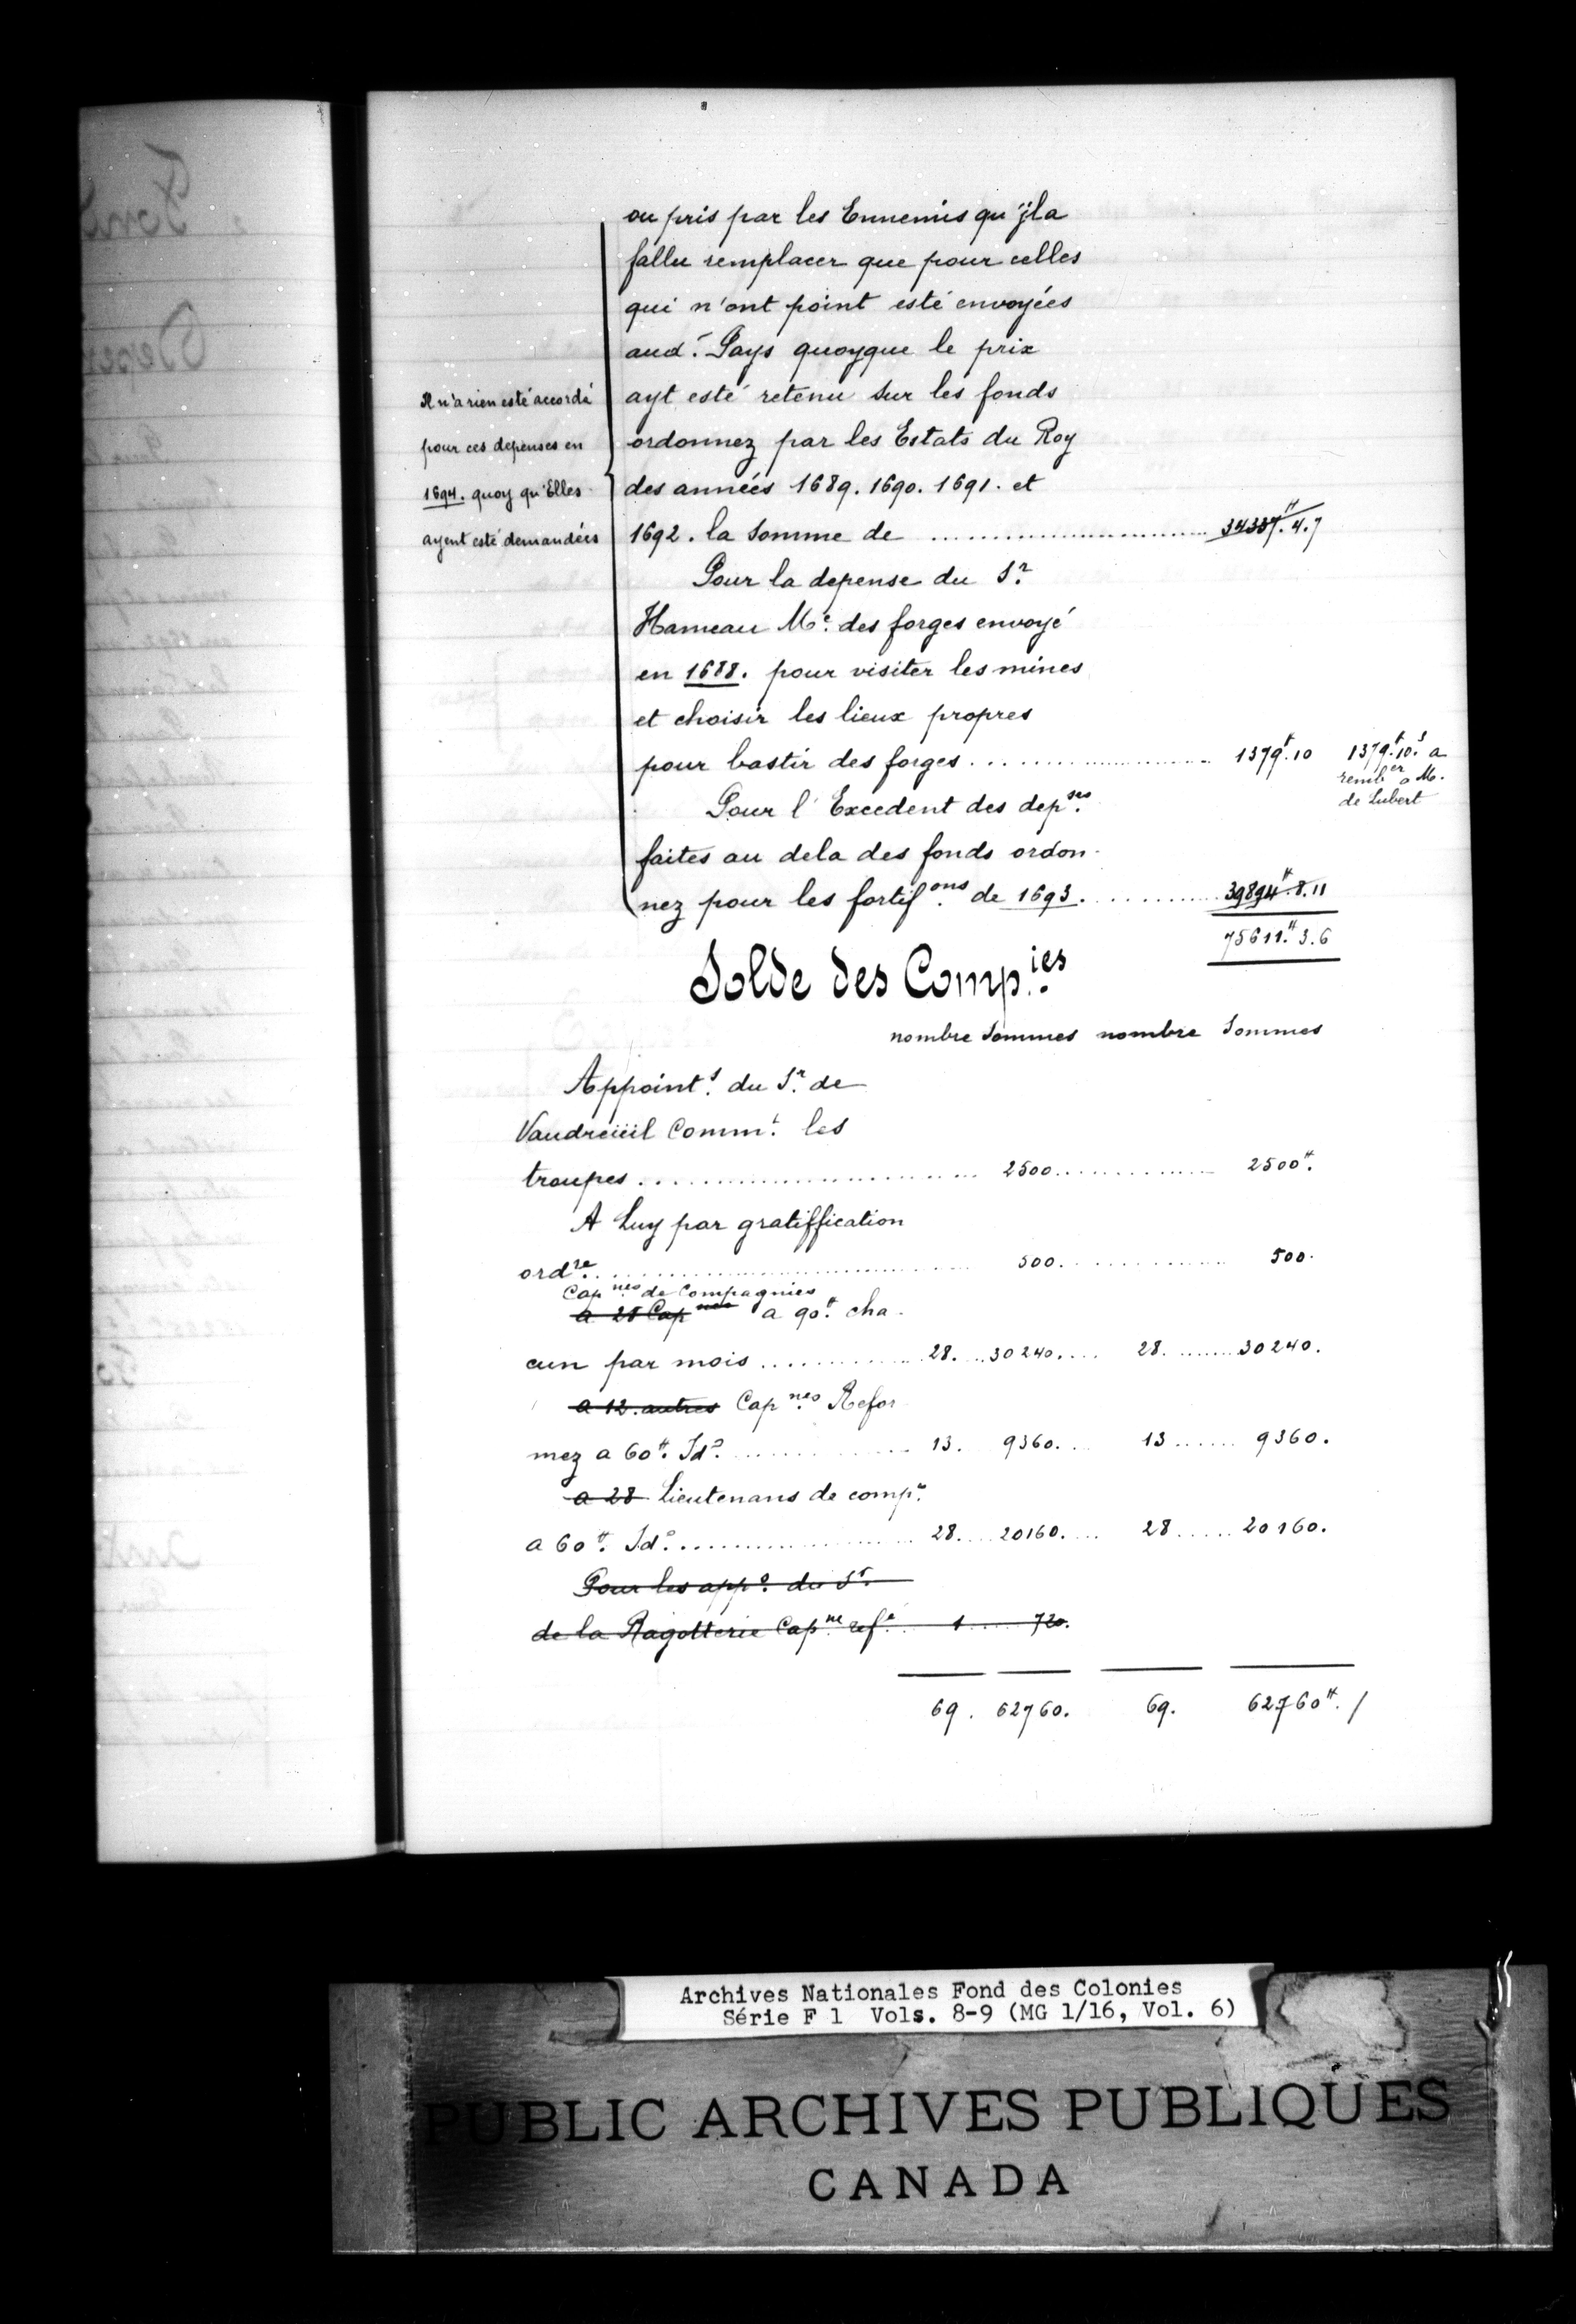 ou pris par les Ennemis qu'jl a
fallu remplacer que pour celles
qui n'ont point esté envoyées
aud.t Pays quoyque le prix
ayt esté retenu sur les fonds
ordonnez par les Estats du Roy
des années 1689. 1690. 1691. et
1692. la somme de ........ 34337.# 4. 7
Il n'a rien esté accordé
pour ces depenses en
1694. quoy qu'Elles
ayent esté demandées
Pour la depense du S.r
Hameau M.e des forges envoyé
en 1688. pour visiter les mines
et choisir les lieux propres
pour bastir des forges ........ 1379.t 10
1379.t 10.s a
remb.er a M.
de Lubert
Pour l'Excedent des dep.ses
faites au dela des fonds ordon-
nez pour les fortif.ons de 1693. ........ 39894.# 8. 11
75611.# 3. 6
Solde des Comp.ies
nombre Sommes nombre Sommes
Appoint.s du S.r de
Vaudreüil Comm.t les
troupes ........ 2500 ........ 2500#.
A Luy par gratiffication
ord.re ........ 500. ........ 500.
Cap.nes de Compagnies
a 28 Cap nes a 90.# cha-
cun par mois ........ 28. ... 30240. ... 28. ... 30240.
a 12. autres Cap.nes Refor
mez a 60#. Id.o ........ 13. 9360. ... 13 ...... 9360.
a 28 Lieutenans de comp.e
a 60#. Id.o ........ 28. ... 20160. ... 28 ...... 20160.
Pour les app.s du S.r
de la Ragotterie Cap.ne ref.é 1 ..... 720.
69. 62760. 69. 62760#. /
Archives Nationales Fond des Colonies
Série F 1 Vols. 8-9 (MG 1/16, Vol. 6)
PUBLIC ARCHIVES PUBLIQUES
CANADA